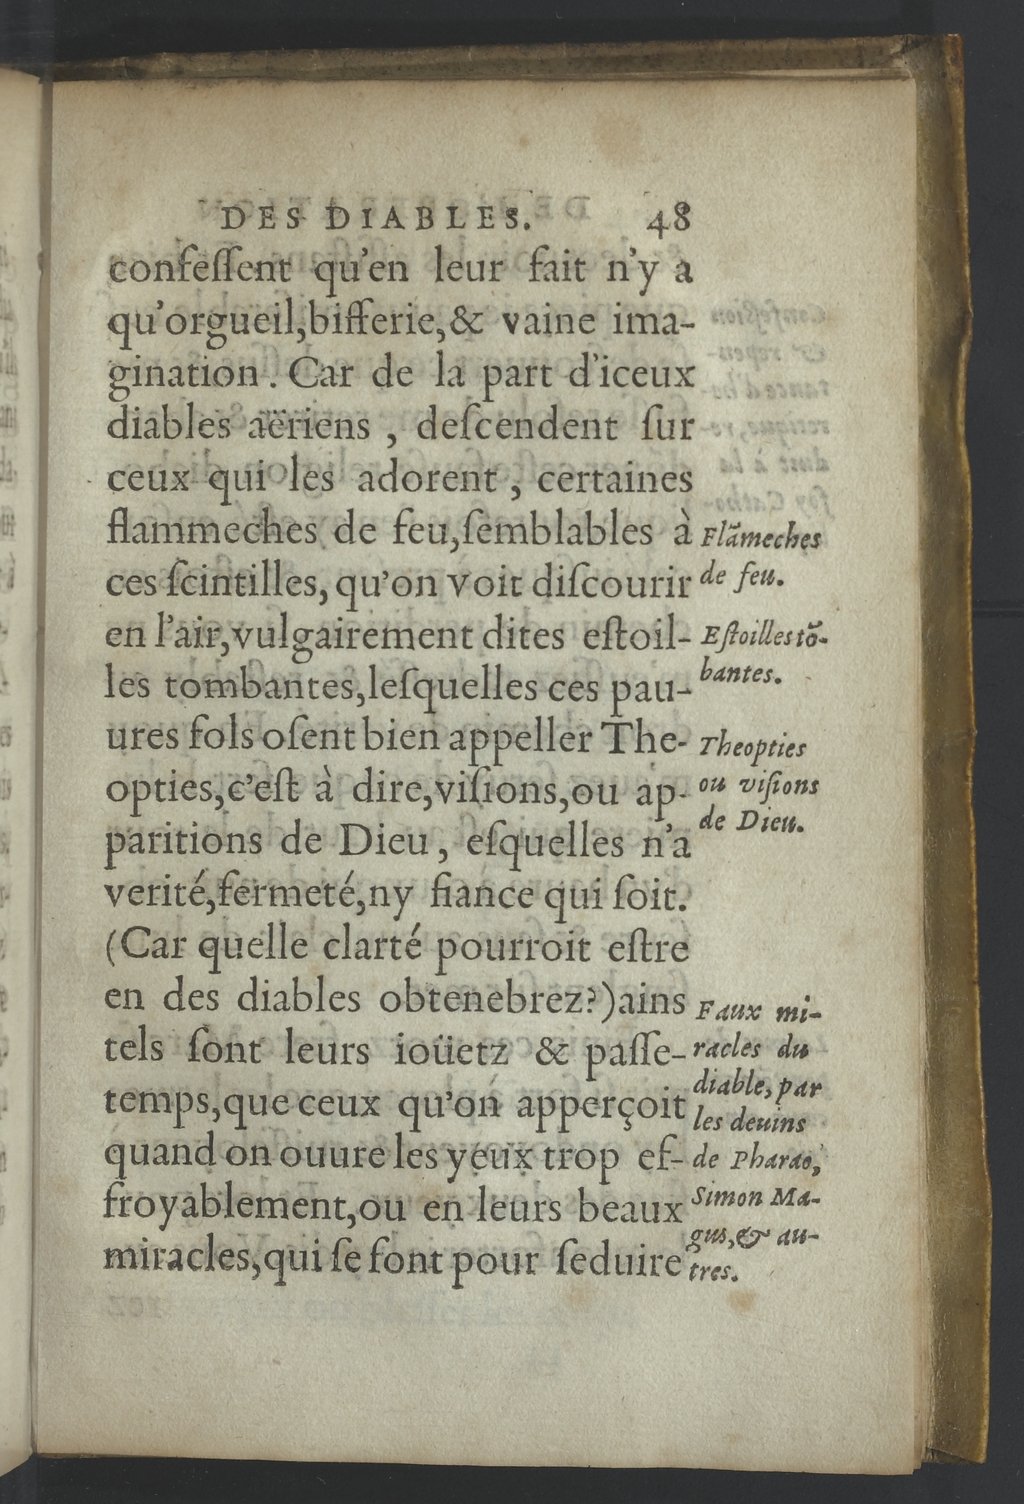 DES DIABLES. 48
confeſſent qu'en leur fait n'y a
qu'orgueil,bifferie,& vaine ima-
gination. Car de la part d'iceux
diables aëriens , deſcendent ſur
ceux qui les adorent , certaines
flammeches de feu,ſemblables à
ces ſcintilles, qu'on voit diſcourir
en l'air,vulgairement dites eſtoil-
les tombantes,leſquelles ces pau-
ures fols oſent bien appeller The-
opties,c'eſt à dire,viſions,ou ap-
paritions de Dieu, eſquelles n'a
verité,fermeté,ny fiance qui ſoit.
(Car quelle clarté pourroit eſtre
en des diables obtenebrez?)ains
tels ſont leurs ioüetz & paſſe-
temps,que ceux qu'on apperçoit
quand on ouure les yeux trop ef-
froyablement,ou en leurs beaux
miracles,qui ſe font pour ſeduire
Flãmeches
de feu.
Eſtoilles tõ-
bantes.
Theopties
ou viſions
de Dieu.
Faux mi-
racles du
diable,par
les deuins
de Pharao,
Simon Ma-
gus,& au-
tres.